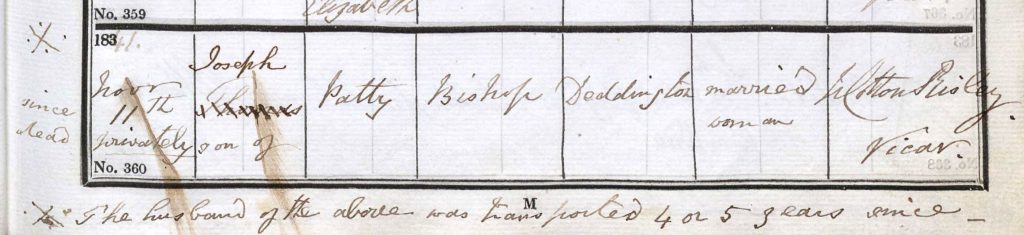 Elizabeth
No. 359
※ 1841.
Novr
11th
privately
Joseph
son of
Patty
Bishop
Deddington
married
woman
W Cotton Risley
Vicar.
since
dead
No. 360
M
※ The husband of the above was transported 4 or 5 years since _